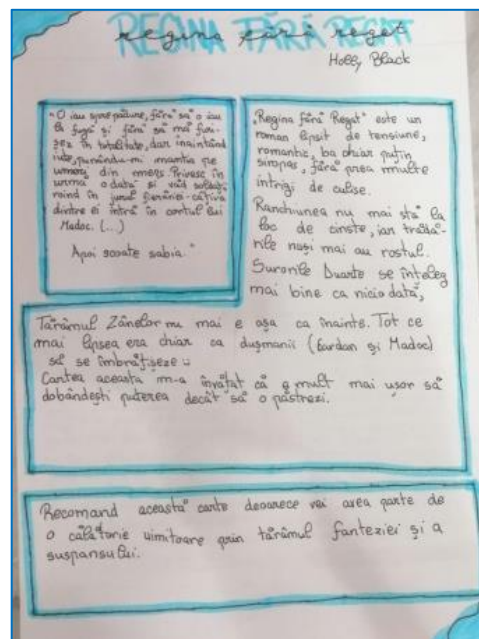 REGINA FĂRĂ REGAT
regina fără regat
Holly Black
"O iau spre pădure, fără să o iau
la fugă și fără să mă furi-
șez în totalitate, dar înaintând
iute, punându-mi mantia pe
umeri din mers. Privesc în
urmă o dată și văd soldați
roind în jurul fierăriei - câțiva
dintre ei intră în cortul lui
Madoc. (...)
Apoi scoate sabia."
„Regina fără Regat" este un
roman lipsit de tensiune,
romantic, ba chiar puțin
siropos, fără prea multe
intrigi de culise.
Ranchiunea nu mai stă la
loc de cinste, iar trădă-
rile nuși mai au rostul.
Surorile Duarte se înțeleg
mai bine ca niciodată,
Tărâmul Zânelor nu mai e așa ca înainte. Tot ce
mai lipsea era chiar ca dușmanii (Cardan și Madoc)
să se îmbrățișeze
Cartea aceasta m-a învățat că e mult mai ușor să
dobândești puterea decât să o păstrezi.
Recomand această carte deoarece vei avea parte de
o călătorie uimitoare prin tărâmul fanteziei și a
suspansului.